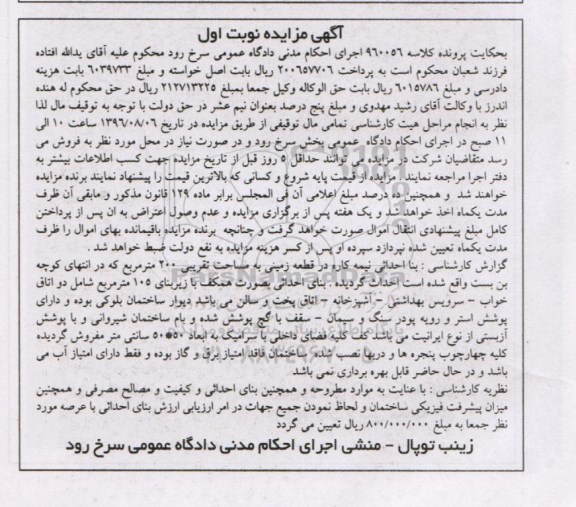 آگهی مزایده نوبت اول
بحکایت پرونده کلاسه ۹۶۰۰۵۶ اجرای احکام مدنی دادگاه عمومی سرخ رود محکوم علیه آقای یدالله افتاده
فرزند شعبان محکوم است به پرداخت ۲۰۰۶۵۷۷۰۶ ریال بابت اصل خواسته و مبلغ ۶۰۳۹۷۳۳ بابت هزینه
دادرسی و مبلغ ۶۰۱۵۷۸۶ ریال بابت حق الوکاله وکیل جمعا بمبلغ ۲۱۲۷۱۳۲۲۵ ریال در حق محکوم له هنده
اندرز با وکالت آقای رشید مهدوی و مبلغ پنج درصد بعنوان نیم عشر در حق دولت با توجه به توقیف مال لذا
نظر به انجام مراحل هیت کارشناسی تمامی مال توقیفی از طریق مزایده در تاریخ ۱۳۹۶/۰۸/۰۶ ساعت ۱۰ الی
۱۱ صبح در اجرای احکام دادگاه عمومی بخش سرخ رود و در صورت نیاز در محل مورد نظر به فروش می
رسد متقاضیان شرکت در مزایده می توانند حداقل ۵ روز قبل از تاریخ مزایده جهت کسب اطلاعات بیشتر به
دفتر اجرا مراجعه نمایند. مزایده از قیمت پایه شروع و کسانی که بالاترین قیمت را پیشنهاد نمایند برنده مزایده
خواهند شد و همچنین ده درصد مبلغ اعلامی آن فی المجلس برابر ماده ۱۲۹ قانون مذکور و مابقی آن ظرف
مدت یکماه اخذ خواهد شد و یک هفته پس از برگزاری مزایده و عدم وصول اعتراض به ان پس از پرداختن
کامل مبلغ پیشنهادی انتقال اموال صورت خواهد گرفت و چنانچه برنده مزایده باقیمانده بهای اموال را ظرف
مدت یکماه تعیین شده نپردازد سپرده او پس از کسر هزینه مزایده به نفع دولت ضبط خواهد شد .
گزارش کارشناسی : بنا احداثی نیمه کاره در قطعه زمینی به مساحت تقریبی ۲۰۰ مترمربع که در انتهای کوچه
بن بست واقع شده است احداث گردیده . بنای احداثی بصورت همکف با زیربنای ۱۰۵ مترمربع شامل دو اتاق
خواب – سرویس بهداشتی – آشپزخانه – اتاق پخت و سالن می باشد دیوار ساختمان بلوکی بوده و دارای
پوشش استر و رویه پودر سنگ و سیمان – سقف با گچ پوشش شده و بام ساختمان شیروانی و با پوشش
آزبستی از نوع ایرانیت می باشد کف کلیه فضای داخلی با سرامیک به ابعاد ۵۰*۵۰ سانتی متر مفروش گردیده
کلیه چهارچوب پنجره ها و دربها نصب شده ساختمان فاقد امتیاز برق و گاز بوده و فقط دارای امتیاز آب می
باشد و در حال حاضر قابل بهره برداری نمی باشد
نظریه کارشناسی : با عنایت به موارد مطروحه و همچنین بنای احداثی و کیفیت و مصالح مصرفی و همچنین
میزان پیشرفت فیزیکی ساختمان و لحاظ نمودن جمیع جهات در امر ارزیابی ارزش بنای احداثی با عرصه مورد
نظر جمعا به مبلغ ۸۰۰/۰۰۰/۰۰۰ ریال تعیین می گردد
زینب توپال – منشی اجرای احکام مدنی دادگاه عمومی سرخ رود